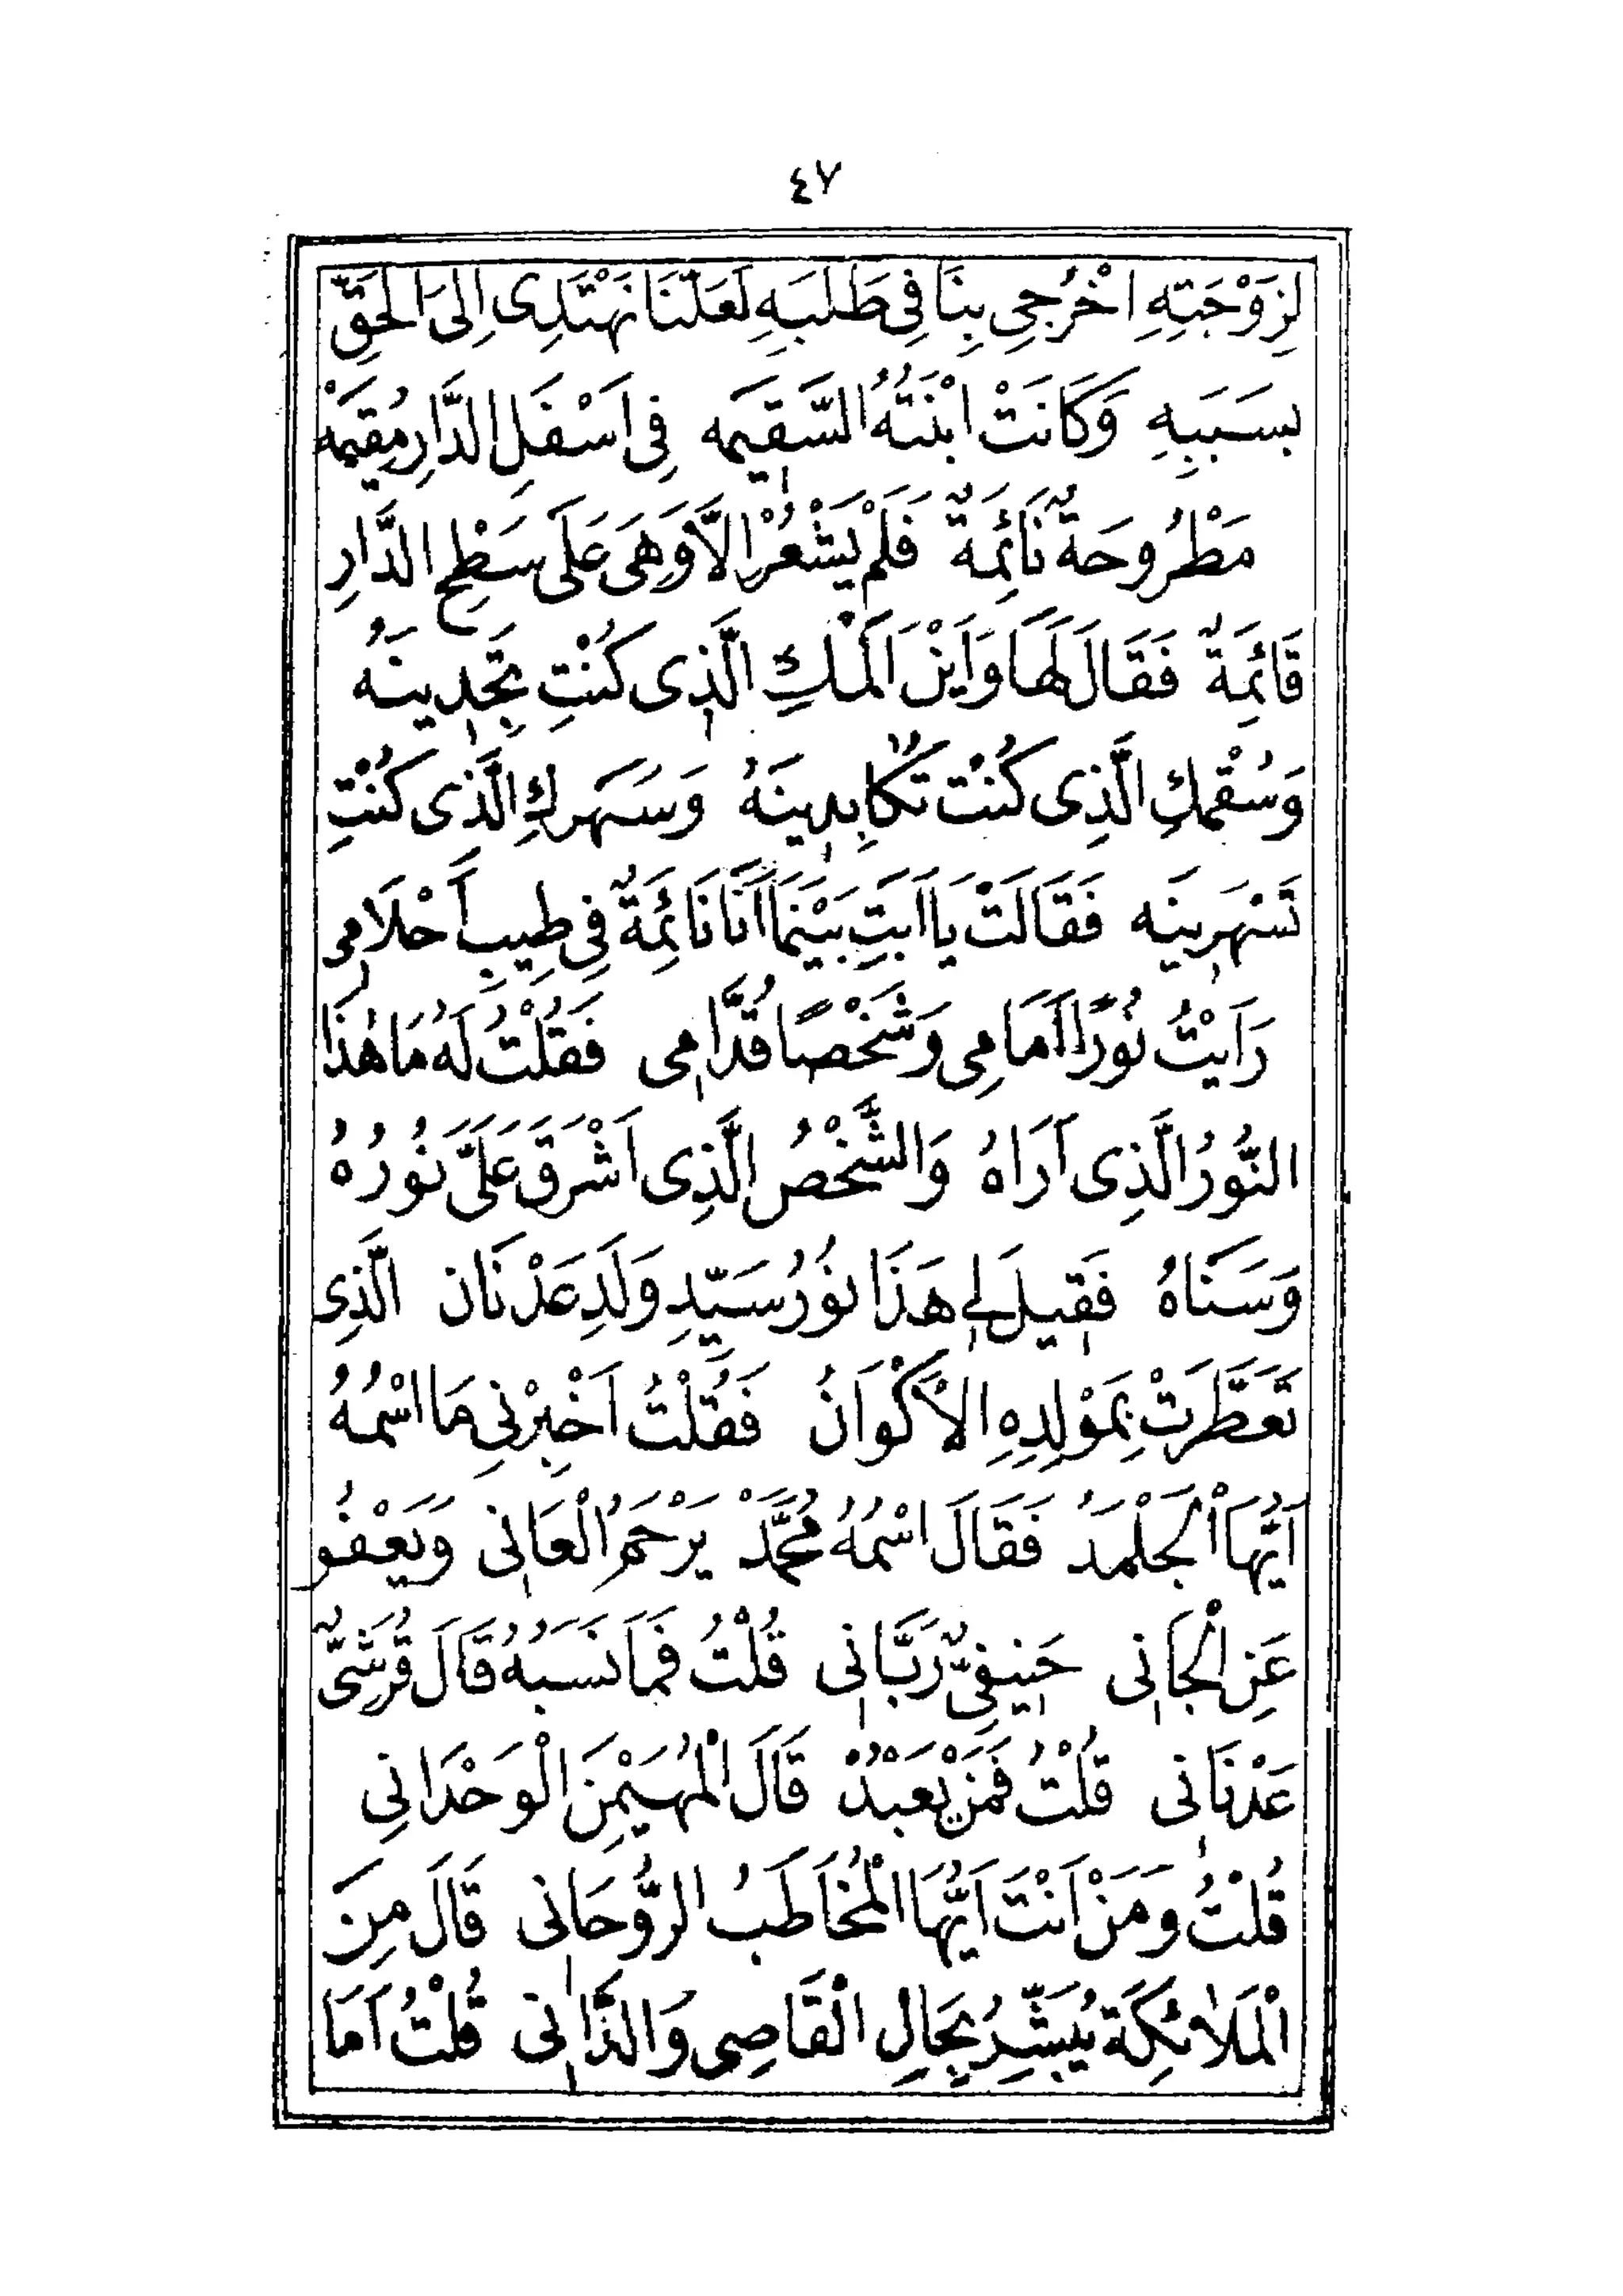 ٤٧
لِزَوْجَتِهِ اخْرُجِي بِنَا فِي طَلَبِهِ لَعَلَّنَا نَهْتَدِى اِلَى الْحَقِّ
بِسَبَبِهِ وَكَانَتْ ابْنَتُهُ السَّقِيمَه فِى اَسْفَلِ الدَّارِ مُقِيمَهْ
مَطْرُوحَةٌ نَائِمَةٌ فَلَمْ يَشْعُرْ اِلَّا وَهِىَ عَلَى سَطْحِ الدَّارِ
قَائِمَةٌ فَقَالَ لَهَا وَاَيْنَ اَلَمُكِ الَّذِى كُنْتِ تَجِدِينَهُ
وَسُقْمُكِ الَّذِى كُنْتِ تُكَابِدِينَهُ وَسَهَرُكِ الَّذِى كُنْتِ
تَسْهَرِينَه فَقَالَتْ يَا اَبَتِ بَيْنَمَا اَنَا نَائِمَةٌ فِى طِيبِ اَحْلَامِى
رَاَيْتُ نُورًا اَمَامِى وَشَخْصًا قُدَّامِى فَقُلْتُ لَهُ مَا هٰذَا
النُّورُ الَّذِى اَرَاهُ وَالشَّخْصُ الَّذِى اَشْرَقَ عَلَىَّ نُورُهُ
وَسَنَاهُ فَقِيلَ لِى هَذَا نُورُ سَيِّدِ وَلَدِ عَدْنَان الَّذِى
تَعَطَّرَتْ بِمَوْلِدِهِ الْاَكْوَانُ فَقُلْتُ اَخْبِرْنِى مَا اسْمُهُ
اَيُّهَا الْجَلْمَدُ فَقَالَ اسْمُهُ مُحَمَّدْ يَرْحَمُ الْعَانِى وَيَعْفُو
عَنِ الْجَانِى حَنِيفِىٌّ رَبَّانِى قُلْتُ فَمَا نَسَبُهُ قَالَ قُرَشِىٌّ
عَدْنَانِى قُلْتُ فَمَنْ يَعْبُدُ قَالَ الْمُهَيْمِنَ الْوَحْدَانِى
قُلْتُ وَمَنْ اَنْتَ اَيُّهَا الْمُخَاطَبُ الرُّوحَانِى قَالَ مِنَ
الْمَلَائِكَةِ يُبَشِّرُ بِجَالِ الْقَاصِى وَالدَّانِى قُلْتُ اَمَا